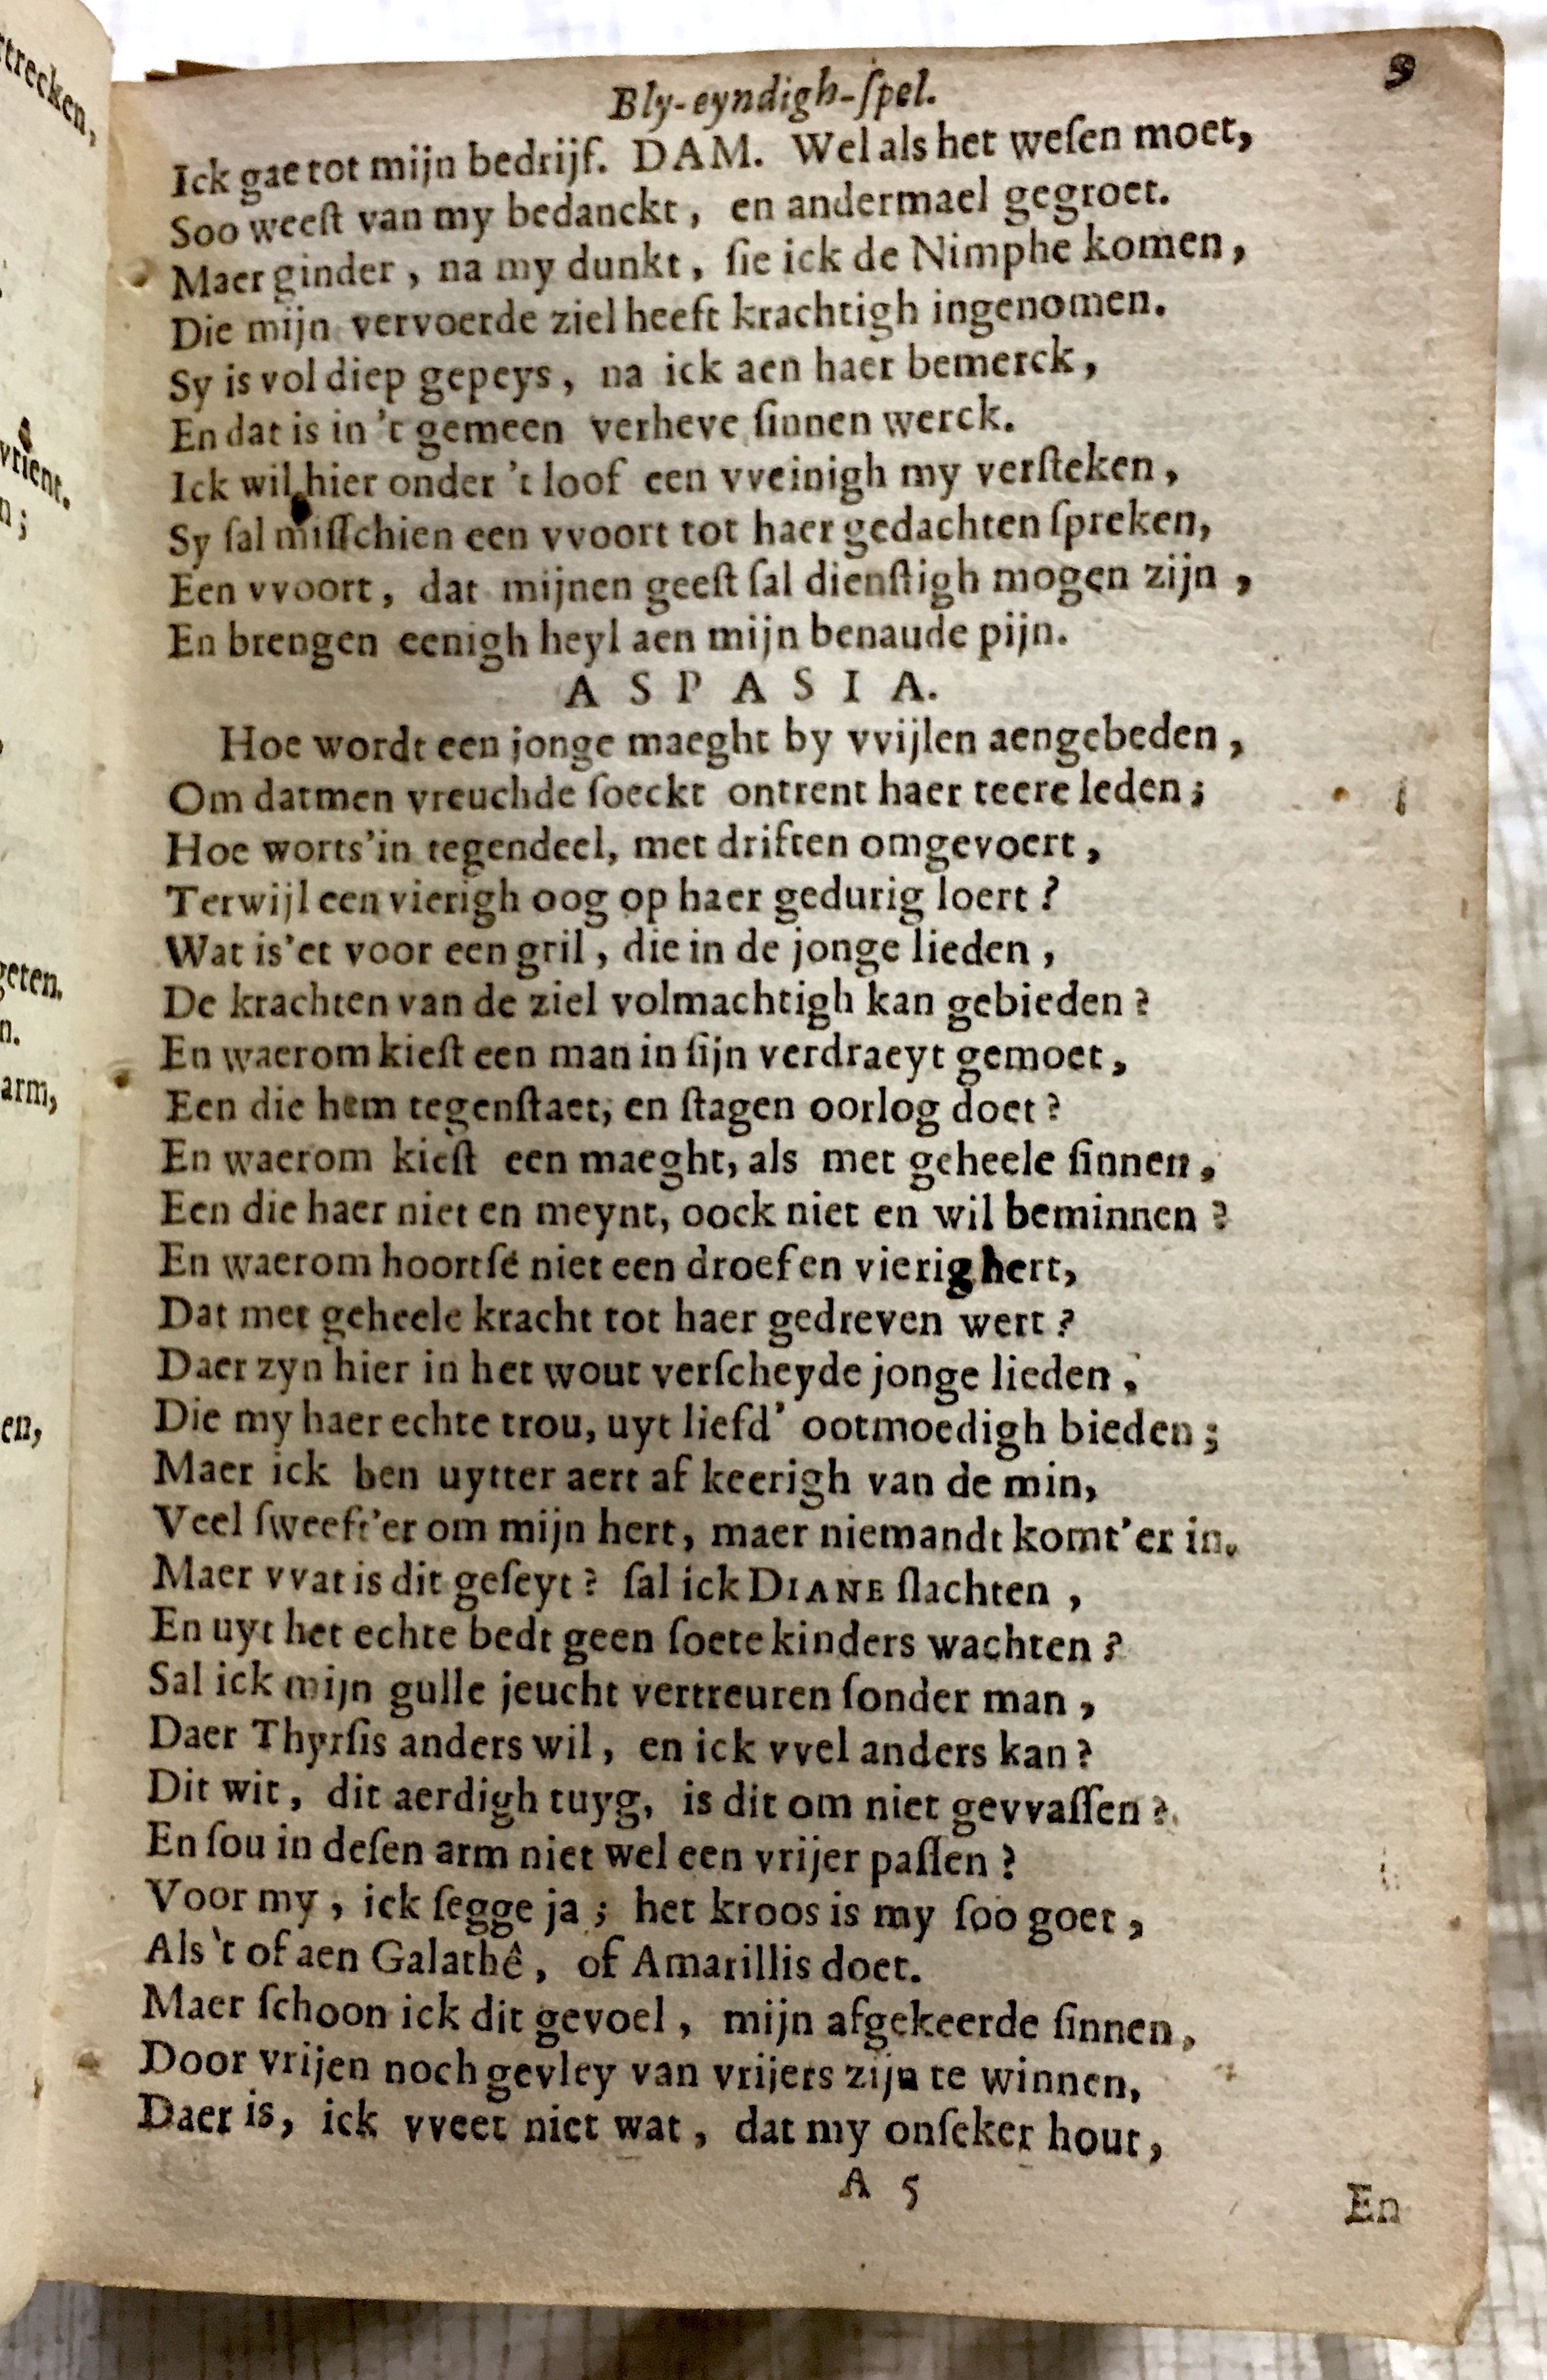 Bly-eyndigh-ſpel. 9
Ick gae tot mijn bedrijf. DAM. Wel als het weſen moet,
Soo weeſt van my bedanckt, en andermael gegroet.
Maer ginder, na my dunkt, ſie ick de Nimphe komen,
Die mijn vervoerde ziel heeft krachtigh ingenomen.
Sy is vol diep gepeys, na ick aen haer bemerck,
En dat is in 't gemeen verheve ſinnen werck.
Ick wil hier onder 't loof een vveinigh my verſteken,
Sy ſal miſſchien een vvoort tot haer gedachten ſpreken,
Een vvoort, dat mijnen geeſt ſal dienſtigh mogen zijn,
En brengen eenigh heyl aen mijn benaude pijn.
ASPASIA.
Hoe wordt een jonge maeght by vvijlen aengebeden,
Om datmen vreuchde ſoeckt ontrent haer teere leden;
Hoe worts'in tegendeel, met driften omgevoert,
Terwijl een vierigh oog op haer gedurig loert?
Wat is'et voor een gril, die in de jonge lieden,
De krachten van de ziel volmachtigh kan gebieden?
En waerom kieſt een man in ſijn verdraeyt gemoet,
Een die hem tegenſtaet, en ſtagen oorlog doet?
En waerom kieſt een maeght, als met geheele ſinnen,
Een die haer niet en meynt, oock niet en wil beminnen?
En waerom hoortſe niet een droef en vierig hert,
Dat met geheele kracht tot haer gedreven wert?
Daer zyn hier in het wout verſcheyde jonge lieden,
Die my haer echte trou, uyt liefd' ootmoedigh bieden;
Maer ick ben uytter aert af keerigh van de min,
Veel ſweeft'er om mijn hert, maer niemandt komt'er in.
Maer vvat is dit geſeyt? ſal ick DIANE ſlachten,
En uyt het echte bedt geen ſoete kinders wachten?
Sal ick mijn gulle jeucht vertreuren ſonder man,
Daer Thyrſis anders wil, en ick vvel anders kan?
Dit wit, dit aerdigh tuyg, is dit om niet gevvaſſen?
En ſou in deſen arm niet wel een vrijer paſſen?
Voor my, ick ſegge ja; het kroos is my ſoo goet,
Als 't of aen Galathê, of Amarillis doet.
Maer ſchoon ick dit gevoel, mijn afgekeerde ſinnen,
Door vrijen noch gevley van vrijers zijn te winnen,
Daer is, ick vveet niet wat, dat my onſeker hout,
A 5
En
trecken,
vrient.
n;
geten.
n.
arm,
en,